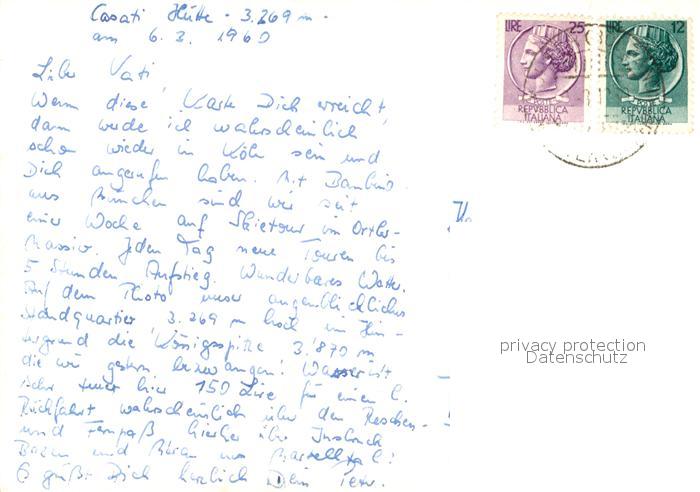 Casati Hütte - 3.269 m -
am 6.3.1960
Lieber Vati,
Wenn diese Karte Dich erreicht,
dann werde ich wahrscheinlich
schon wieder in Köln sein und
Dich angerufen haben. Mit Bambino
aus München sind wir seit
einer Woche auf Skietour im Ortler-
Massiv. Jeden Tag neue Touren bis
5 Stunden Aufstieg. Wunderbares Wetter.
Auf dem Photo unser augenblickliches
Standquartier 3.269 m hoch im Hin-
tergrund die Königsspitze 3.870 m
die wir gestern bezwangen! Wasser ist
sehr teuer hier 150 Lire für einen l.
Rückfahrt wahrscheinlich über den Reschen-
und Fernpaß hierher über Insbruck
Bozen und Meran ins Martelltal!
Es grüßt Dich herzlich Dein
LIRE 25
POSTE
REPVBBLICA
ITALIANA
LIRE 12
POSTE
REPVBBLICA
ITALIANA
privacy protection
Datenschutz